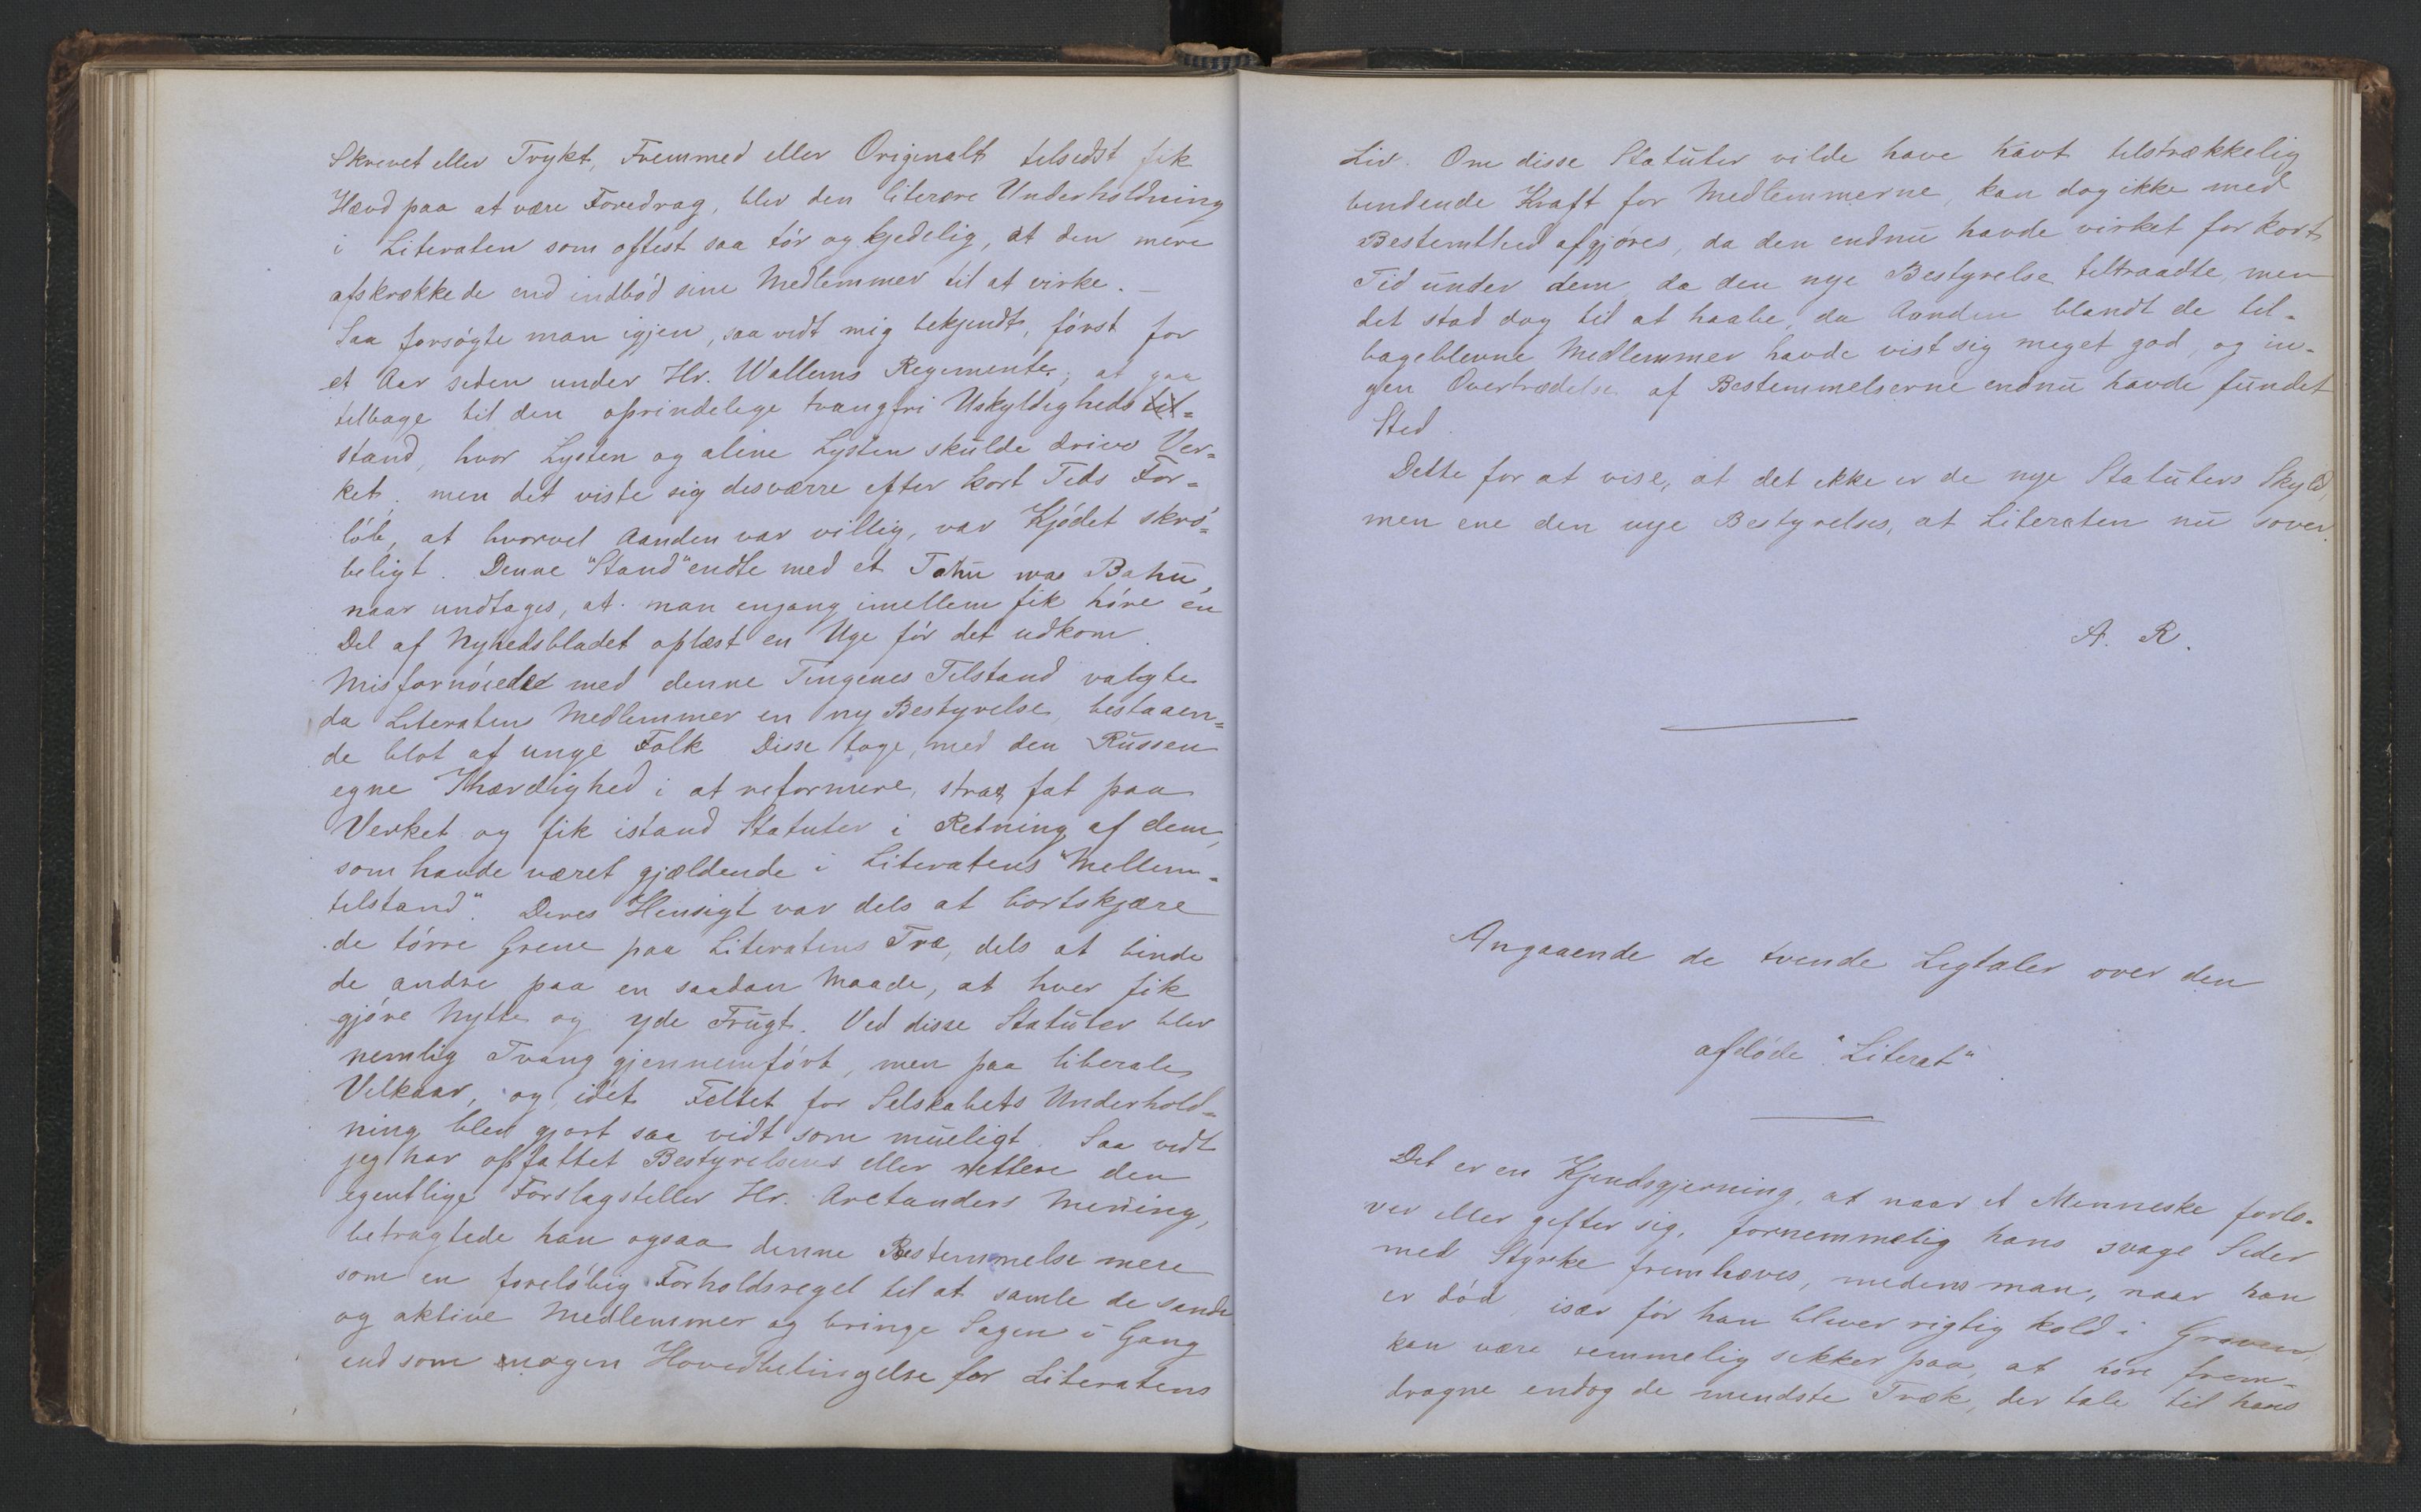 Skrevet eller Trykt, Fremmed eller Originalt tilsidst fik
Hævd paa at være Foredrag, blev den literære Underholdning
i Literaten som oftest saa tör og kjedelig, at den mere
afskrækkede end indbød sine Medlemmer til at virke. —
Saa forsøgte man igjen, saa vidt mig bekjendt, först for
et Aar siden under Hr. Wallems Regimente, at gaa
tilbage til den oprindelige tvangfri Uskyldigheds til=
stand, hvor Lysten og alene Lysten skulde drive Ver=
ket, men det viste sig desværre efter kort Tids For=
löb, at hvorvel Aanden var villig, var Kjödet skrö=
beligt. Denne "Stand" endte med et Tohu wa Bohu,
naar undtages, at man engang imellem fik höre en
Del af Nyhedsbladet oplæst en Uge för det udkom.
Misfornöiede med denne Tingenes Tilstand valgte
da Literatens Medlemmer en ny Bestyrelse, bestaaen=
de blot af unge Folk. Disse toge, med den Russen
egne Ihærdighed i at reformere, strax fat paa
Verket og fik istand Statuter i Retning af dem,
som havde været gjældende i Literatens "Mellem=
tilstand". Deres Hensigt var dels at bortskjære
de törre Grene paa Literatens Træ, dels at binde
de andre paa en saadan Maade, at hver fik
gjöre Nytte og yde Frugt. Ved disse Statuter blev
nemlig Tvang gjennemfört, men paa liberale
Vilkaar, og idet Feltet for Selskabets Underhold=
ning blev gjort saa vidt som mueligt. Saa vidt
jeg har opfattet Bestyrelsens eller rettere den
egentlige Forslagstiller Hr. Arctanders Mening,
betragtede han ogsaa denne Bestemmelse mere
som en forelöbig Forholdsregel til at samle de sande
og aktive Medlemmer og bringe Sagen i Gang
end som nogen Hovedbetingelse for Literatens
Liv. Om disse Statuter vilde have havt tilstrækkelig
bindende Kraft for Medlemmerne, kan dog ikke med
Bestemthed afgjöres, da den endnu havde virket for kort
Tid under dem, da den nye Bestyrelse tiltraadte, men
det stod dog til at haabe, da Aanden blandt de til=
bageblevne Medlemmer havde vist sig meget god, og in=
gen Overtrædelse af Bestemmelserne endnu havde fundet
Sted.
Dette for at vise, at det ikke er de nye Statuters Skyld,
men ene den nye Bestyrelses, at Literaten nu sover.
A. R.
Angaaende de tvende Ligtaler over den
afdöde "Literat".
Det er en Kjendsgjerning, at naar et Menneske forlo=
ver eller gifter sig, fornemmelig hans svage Sider
med Styrke fremhæves, medens man, naar han
er död, især för han bliver rigtig kold i Graven,
kan være temmelig sikker paa, at höre frem=
dragne endog de mindste Træk, der tale til hans